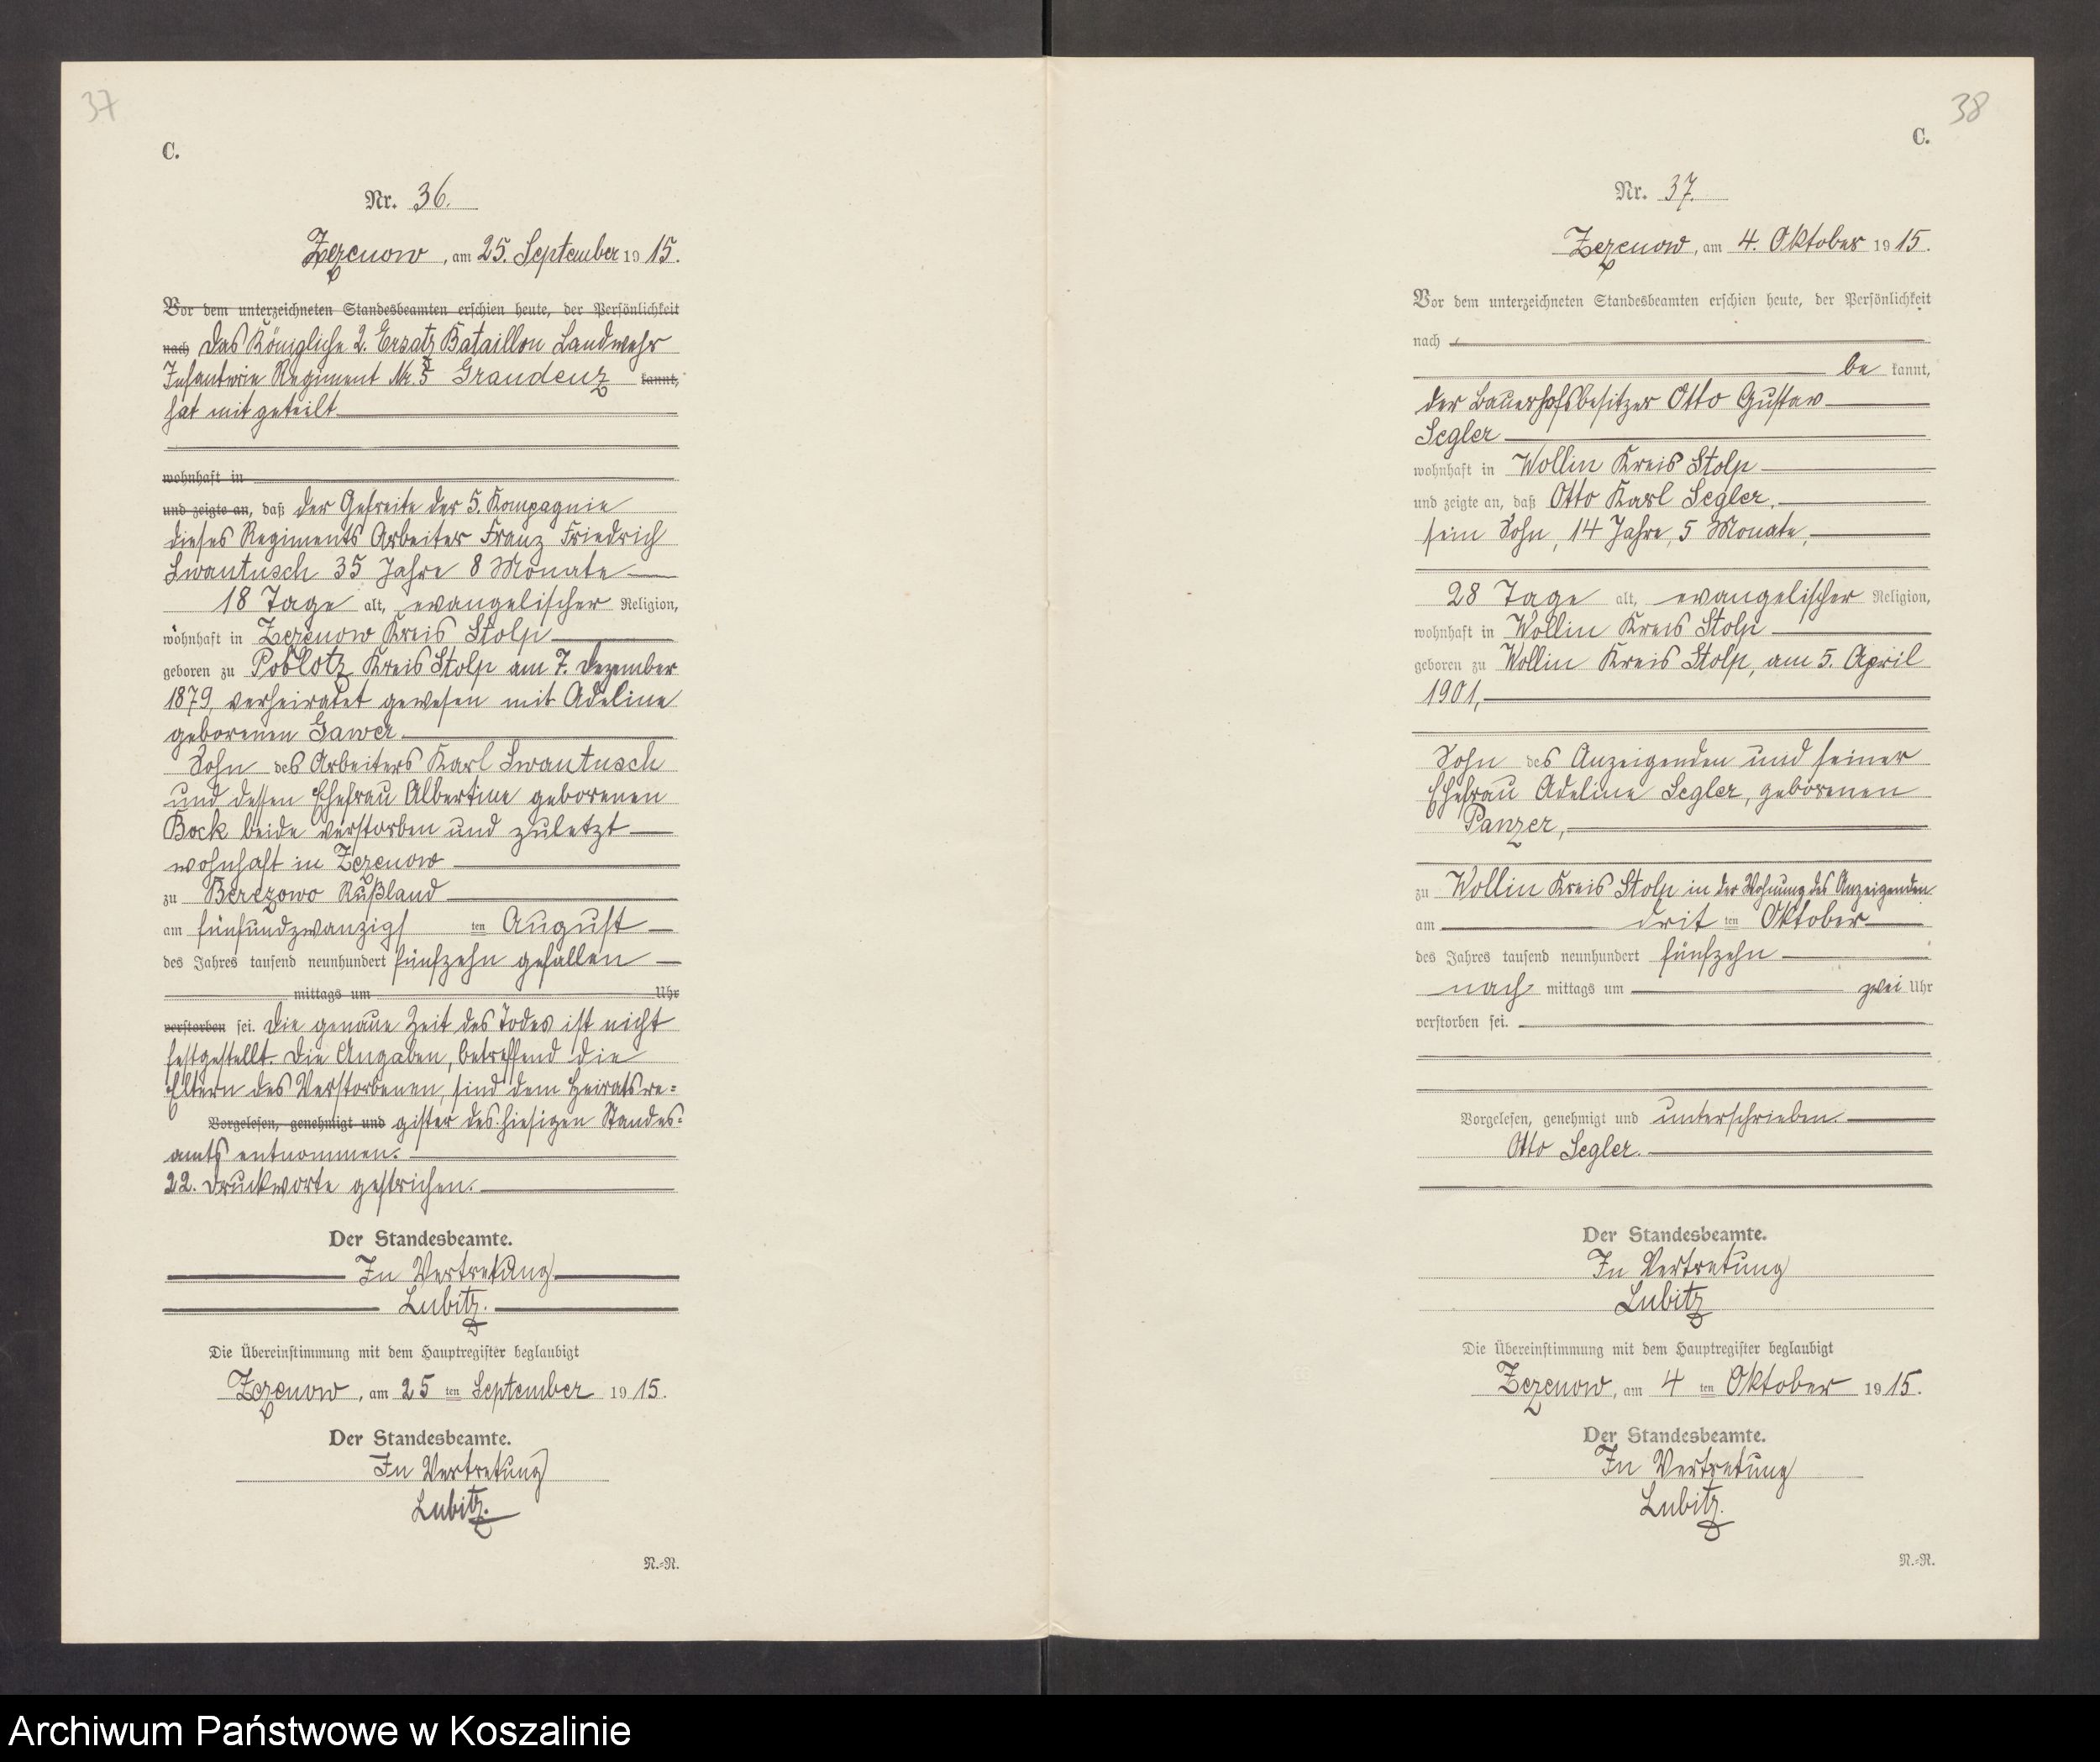 37
C.
Nr. 36.
Zezenow, am 25. September 1915.
Vor dem unterzeichneten Standesbeamten erschien heute, der Persönlichkeit
nach das Königliche 2. Ersatz Bataillon Landwehr
Infanterie Regiment Nr. 5 Graudenz kannt,
hat mitgeteilt
wohnhaft in
und zeigte an, daß der Gefreite der 5. Kompagnie
dieses Regiments Arbeiter Franz Friedrich
Swantusch 35 Jahre 8 Monate
18 Tage alt, evangelischer Religion,
wohnhaft in Zezenow Kreis Stolp
geboren zu Poblotz Kreis Stolp am 7. Dezember
1879, verheiratet gewesen mit Adeline
geborenen Gawer
Sohn des Arbeiters Karl Swantusch
und dessen Ehefrau Albertine geborenen
Bock beide verstorben und zuletzt
wohnhaft in Zezenow
zu Berezowo Rußland
am fünfundzwanzigsten August
des Jahres tausend neunhundert fünfzehn gefallen
mittags um Uhr
verstorben sei. Die genaue Zeit des Todes ist nicht
festgestellt. Die Angaben, betreffend die
Eltern des Verstorbenen, sind dem Heiratsre=
Vorgelesen, genehmigt und gister des hiesigen Standes=
amts entnommen.
22. Druckworte gestrichen.
Der Standesbeamte.
In Vertretung
Lubitz.
Die Übereinstimmung mit dem Hauptregister beglaubigt
Zezenow, am 25 ten September 1915.
Der Standesbeamte.
In Vertretung
Lubitz.
N.=N.
38
C.
Nr. 37.
Zezenow, am 4. Oktober 1915.
Vor dem unterzeichneten Standesbeamten erschien heute, der Persönlichkeit
nach
be kannt,
der Bauerhofsbesitzer Otto Gustav
Segler
wohnhaft in Wollin Kreis Stolp
und zeigte an, daß Otto Karl Segler,
sein Sohn, 14 Jahre, 5 Monate,
28 Tage alt, evangelischer Religion,
wohnhaft in Wollin Kreis Stolp
geboren zu Wollin Kreis Stolp, am 5. April
1901,
Sohn des Anzeigenden und seiner
Ehefrau Adeline Segler, geborenen
Panzer,
zu Wollin Kreis Stolp in der Wohnung des Anzeigenden
am drit ten Oktober
des Jahres tausend neunhundert fünfzehn
nach mittags um zwei Uhr
verstorben sei.
Vorgelesen, genehmigt und unterschrieben.
Otto Segler.
Der Standesbeamte.
In Vertretung
Lubitz
Die Übereinstimmung mit dem Hauptregister beglaubigt
Zezenow, am 4 ten Oktober 1915.
Der Standesbeamte.
In Vertretung
Lubitz.
N.=N.
Archiwum Państwowe w Koszalinie